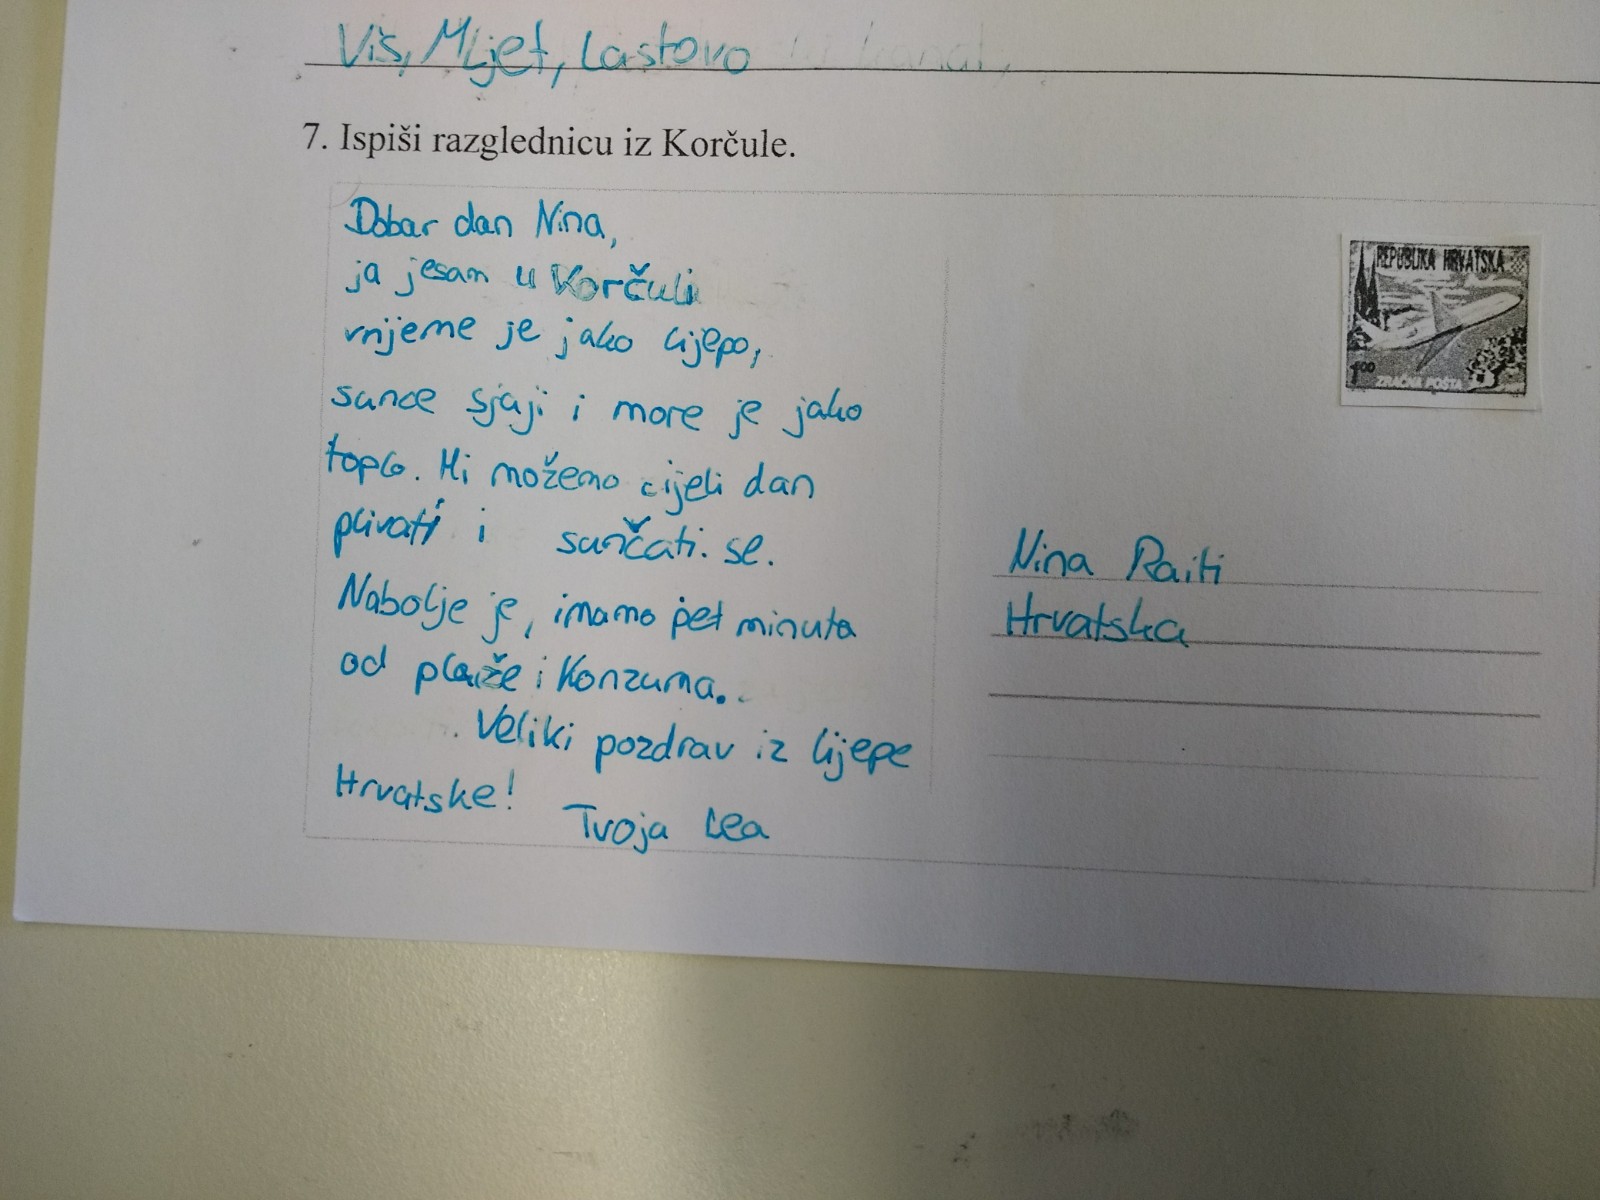 Viš, Mljet, Lastovo
7. Ispiši razglednicu iz Korčule.
Dobar dan Nina,
ja jesam u Korčuli
vrijeme je jako lijepo,
sunce sjaji i more je jako
toplo. Mi možemo cijeli dan
plivati i sunčati se.
Nabolje je, imamo pet minuta
od plaže i Konzuma.
Veliki pozdrav iz lijepe
Hrvatske!
Tvoja Lea
REPUBLIKA HRVATSKA
100
ZRAČNA POŠTA
Nina Raiti
Hrvatska